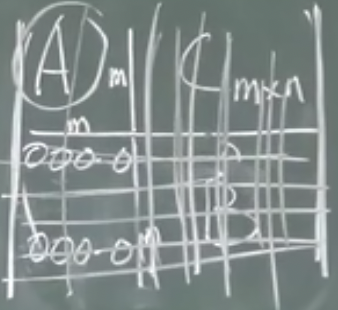 A m C m×n
m
000-0
B
000-0 n